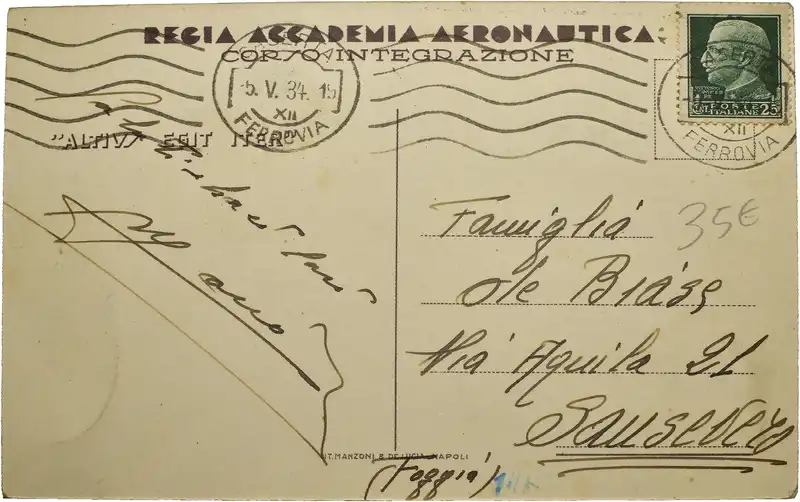 REGIA ACCADEMIA AERONAUTICA
CORSO INTEGRAZIONE
CASERTA
5. V. 34. 15
XII
FERROVIA
CASERTA
XII
FERROVIA
POSTE ITALIANE
CENT. 25
"ALTIUS EGIT ITER"
baci
Famiglia
de Biase
Via Aquila 21
Sansevero
(Foggia)
35€
IT. MANZONI & DE LUCIA - NAPOLI